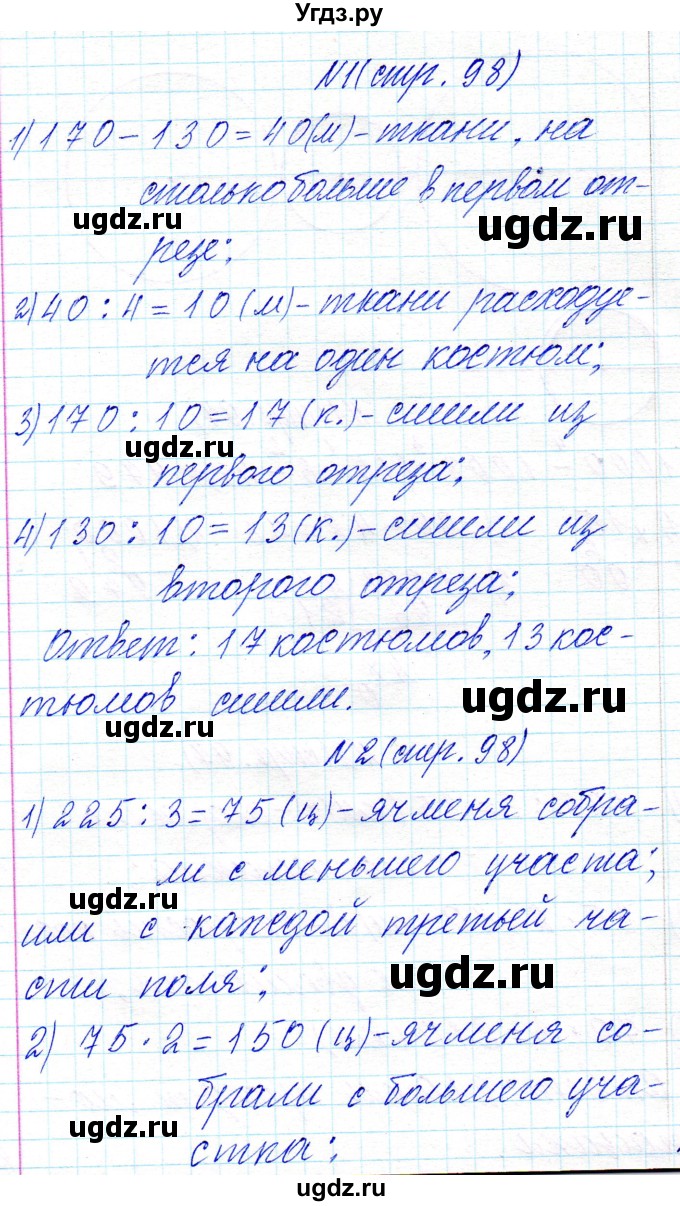 Угдз.ру
N1(стр. 98)
1) 170 – 130 = 40(м) – ткани, на
столько больше в первом от-
резе;
2) 40 : 4 = 10 (м) – ткани расходуе-
тся на один костюм;
3) 170 : 10 = 17 (к.) – сшили из
первого отреза;
4) 130 : 10 = 13 (к.) – сшили из
второго отреза;
Ответ: 17 костюмов, 13 кос-
тюмов сшили.
N2 (стр. 98)
1) 225 : 3 = 75 (ц) – ячменя собра-
ли с меньшего участа;
или с каждой третьей ча-
сти поля;
2) 75 · 2 = 150 (ц) – ячменя со-
брали с большего уча-
стка;
ugdz.ru
ugdz.ru
ugdz.ru
ugdz.ru
ugdz.ru
ugdz.ru
ugdz.ru
ugdz.ru
ugdz.ru